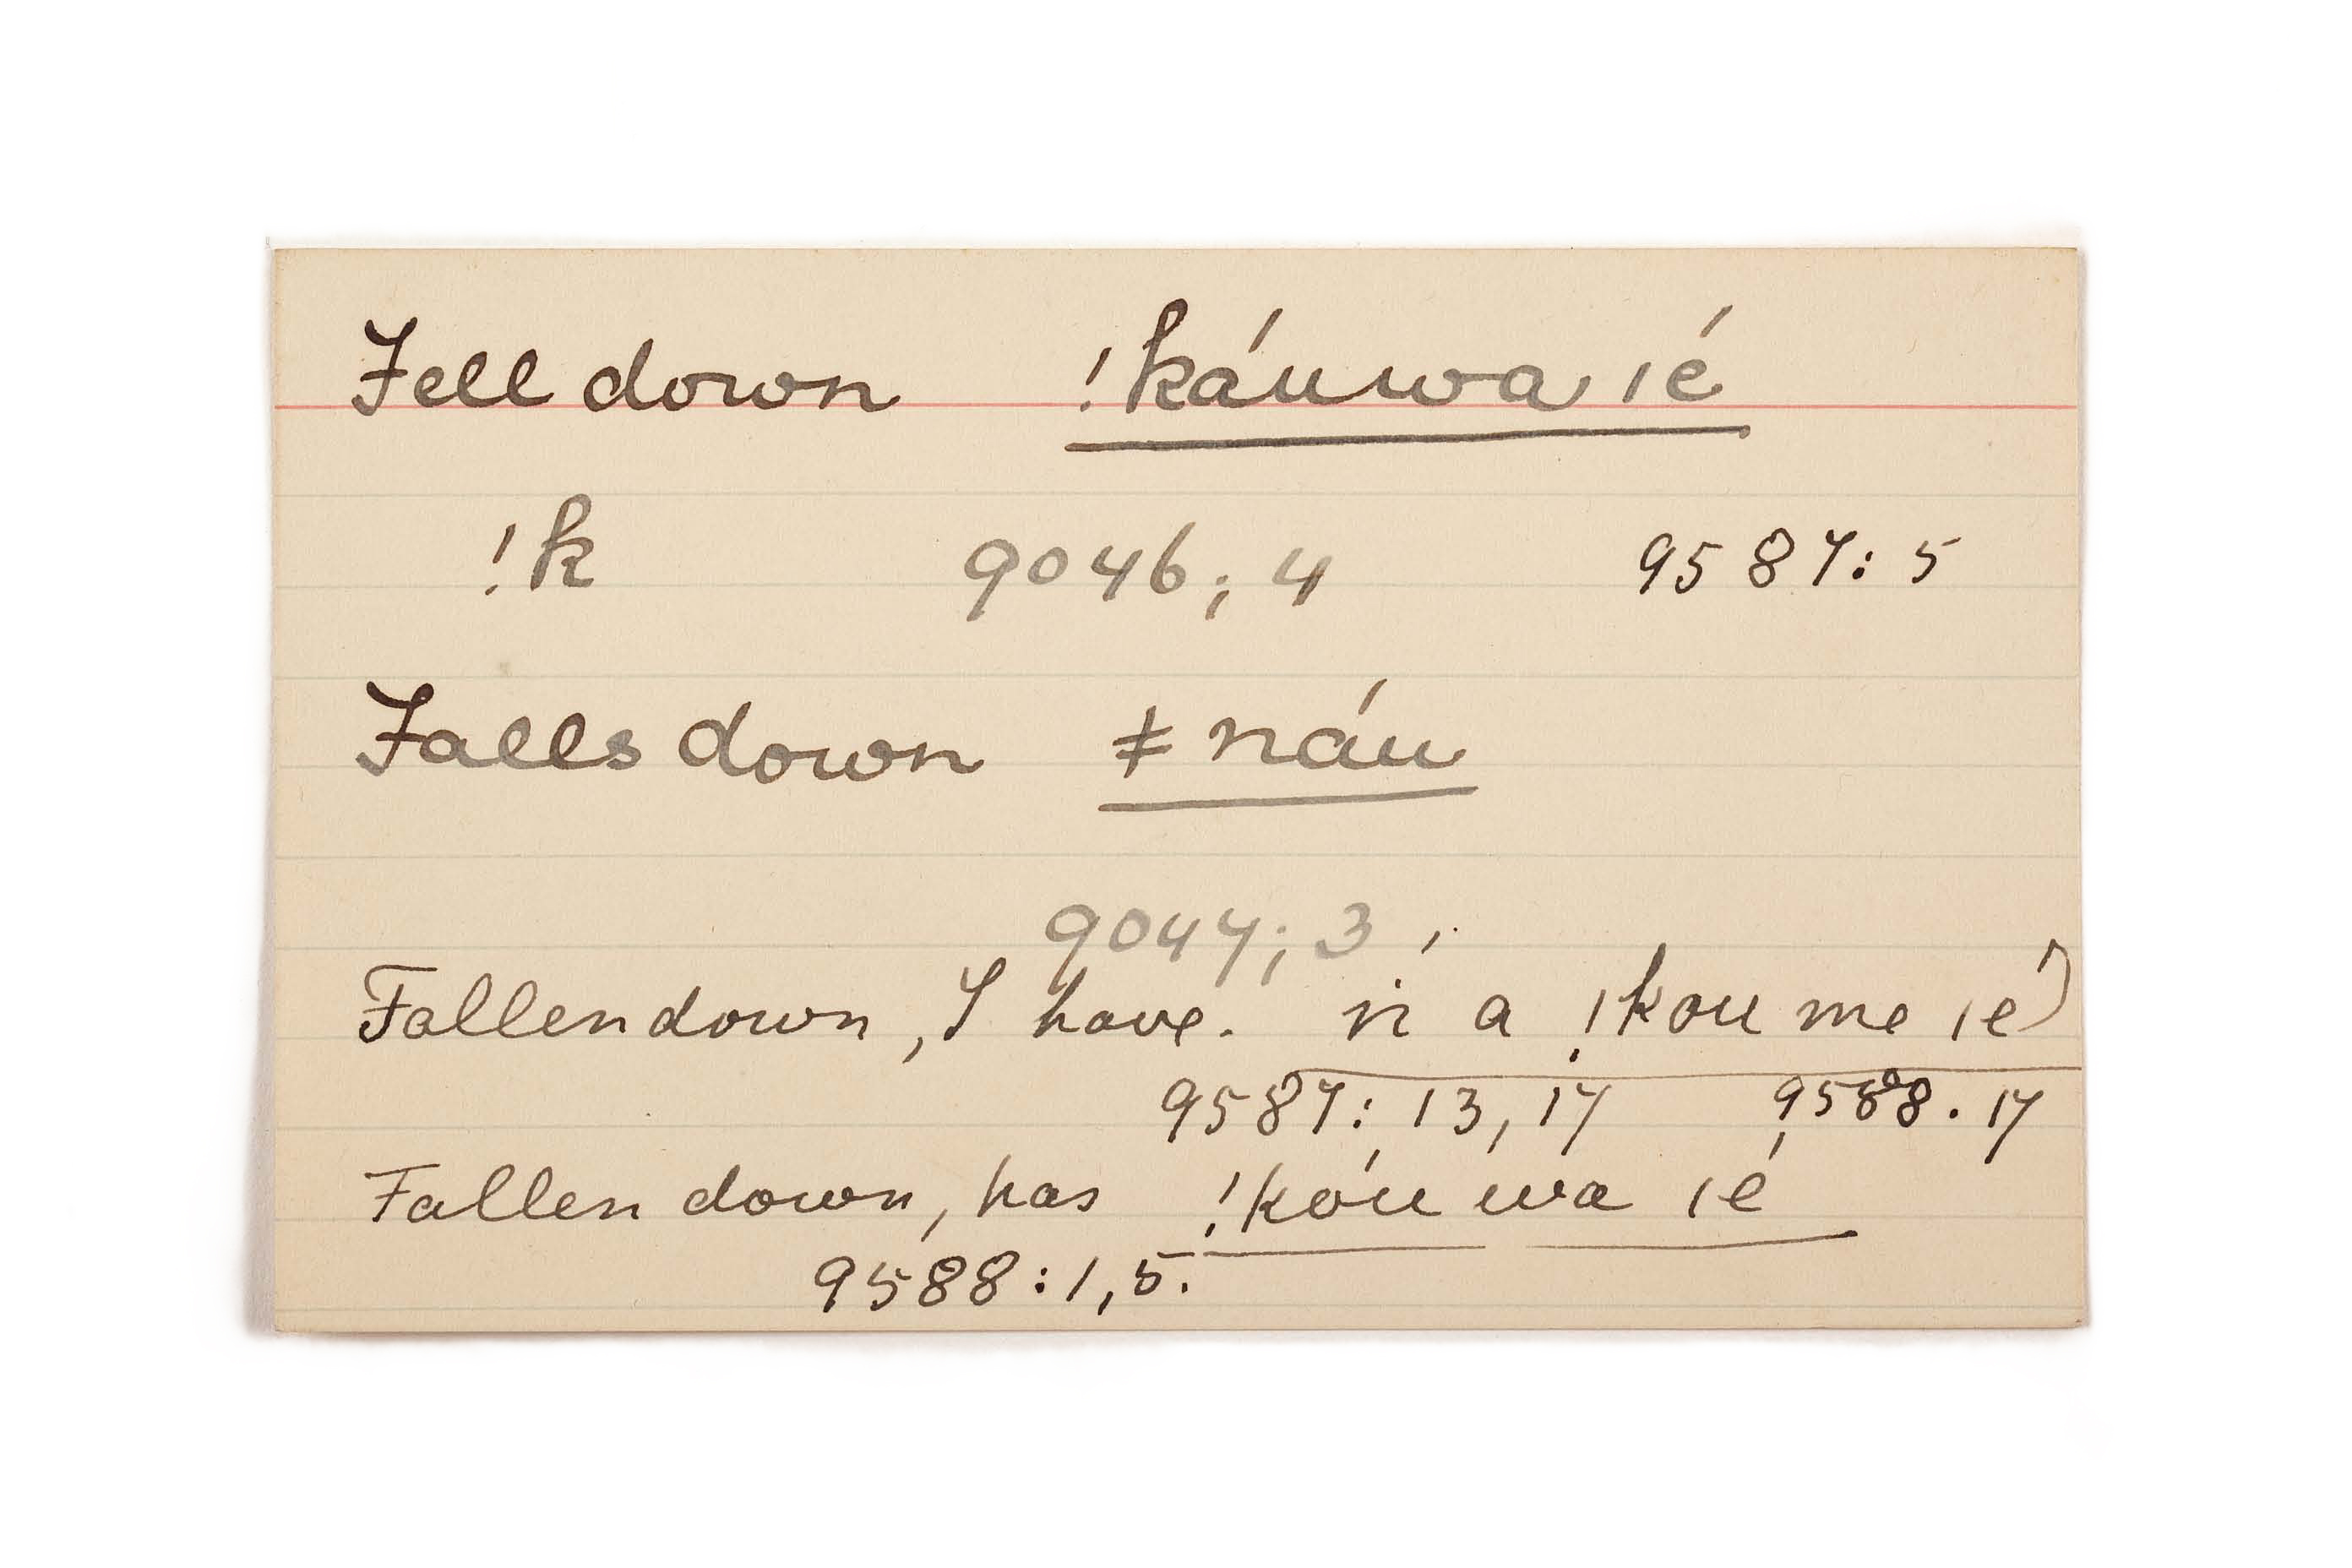 Fell down !káuwa ıé
!k 9046; 4 9587: 5
Falls down ǂ náu
9047; 3
Fallen down, I have. ń a !kou me ıé
9587: 13, 17 9588. 17
Fallen down, has !kóu wa ıé
9588: 1, 5.